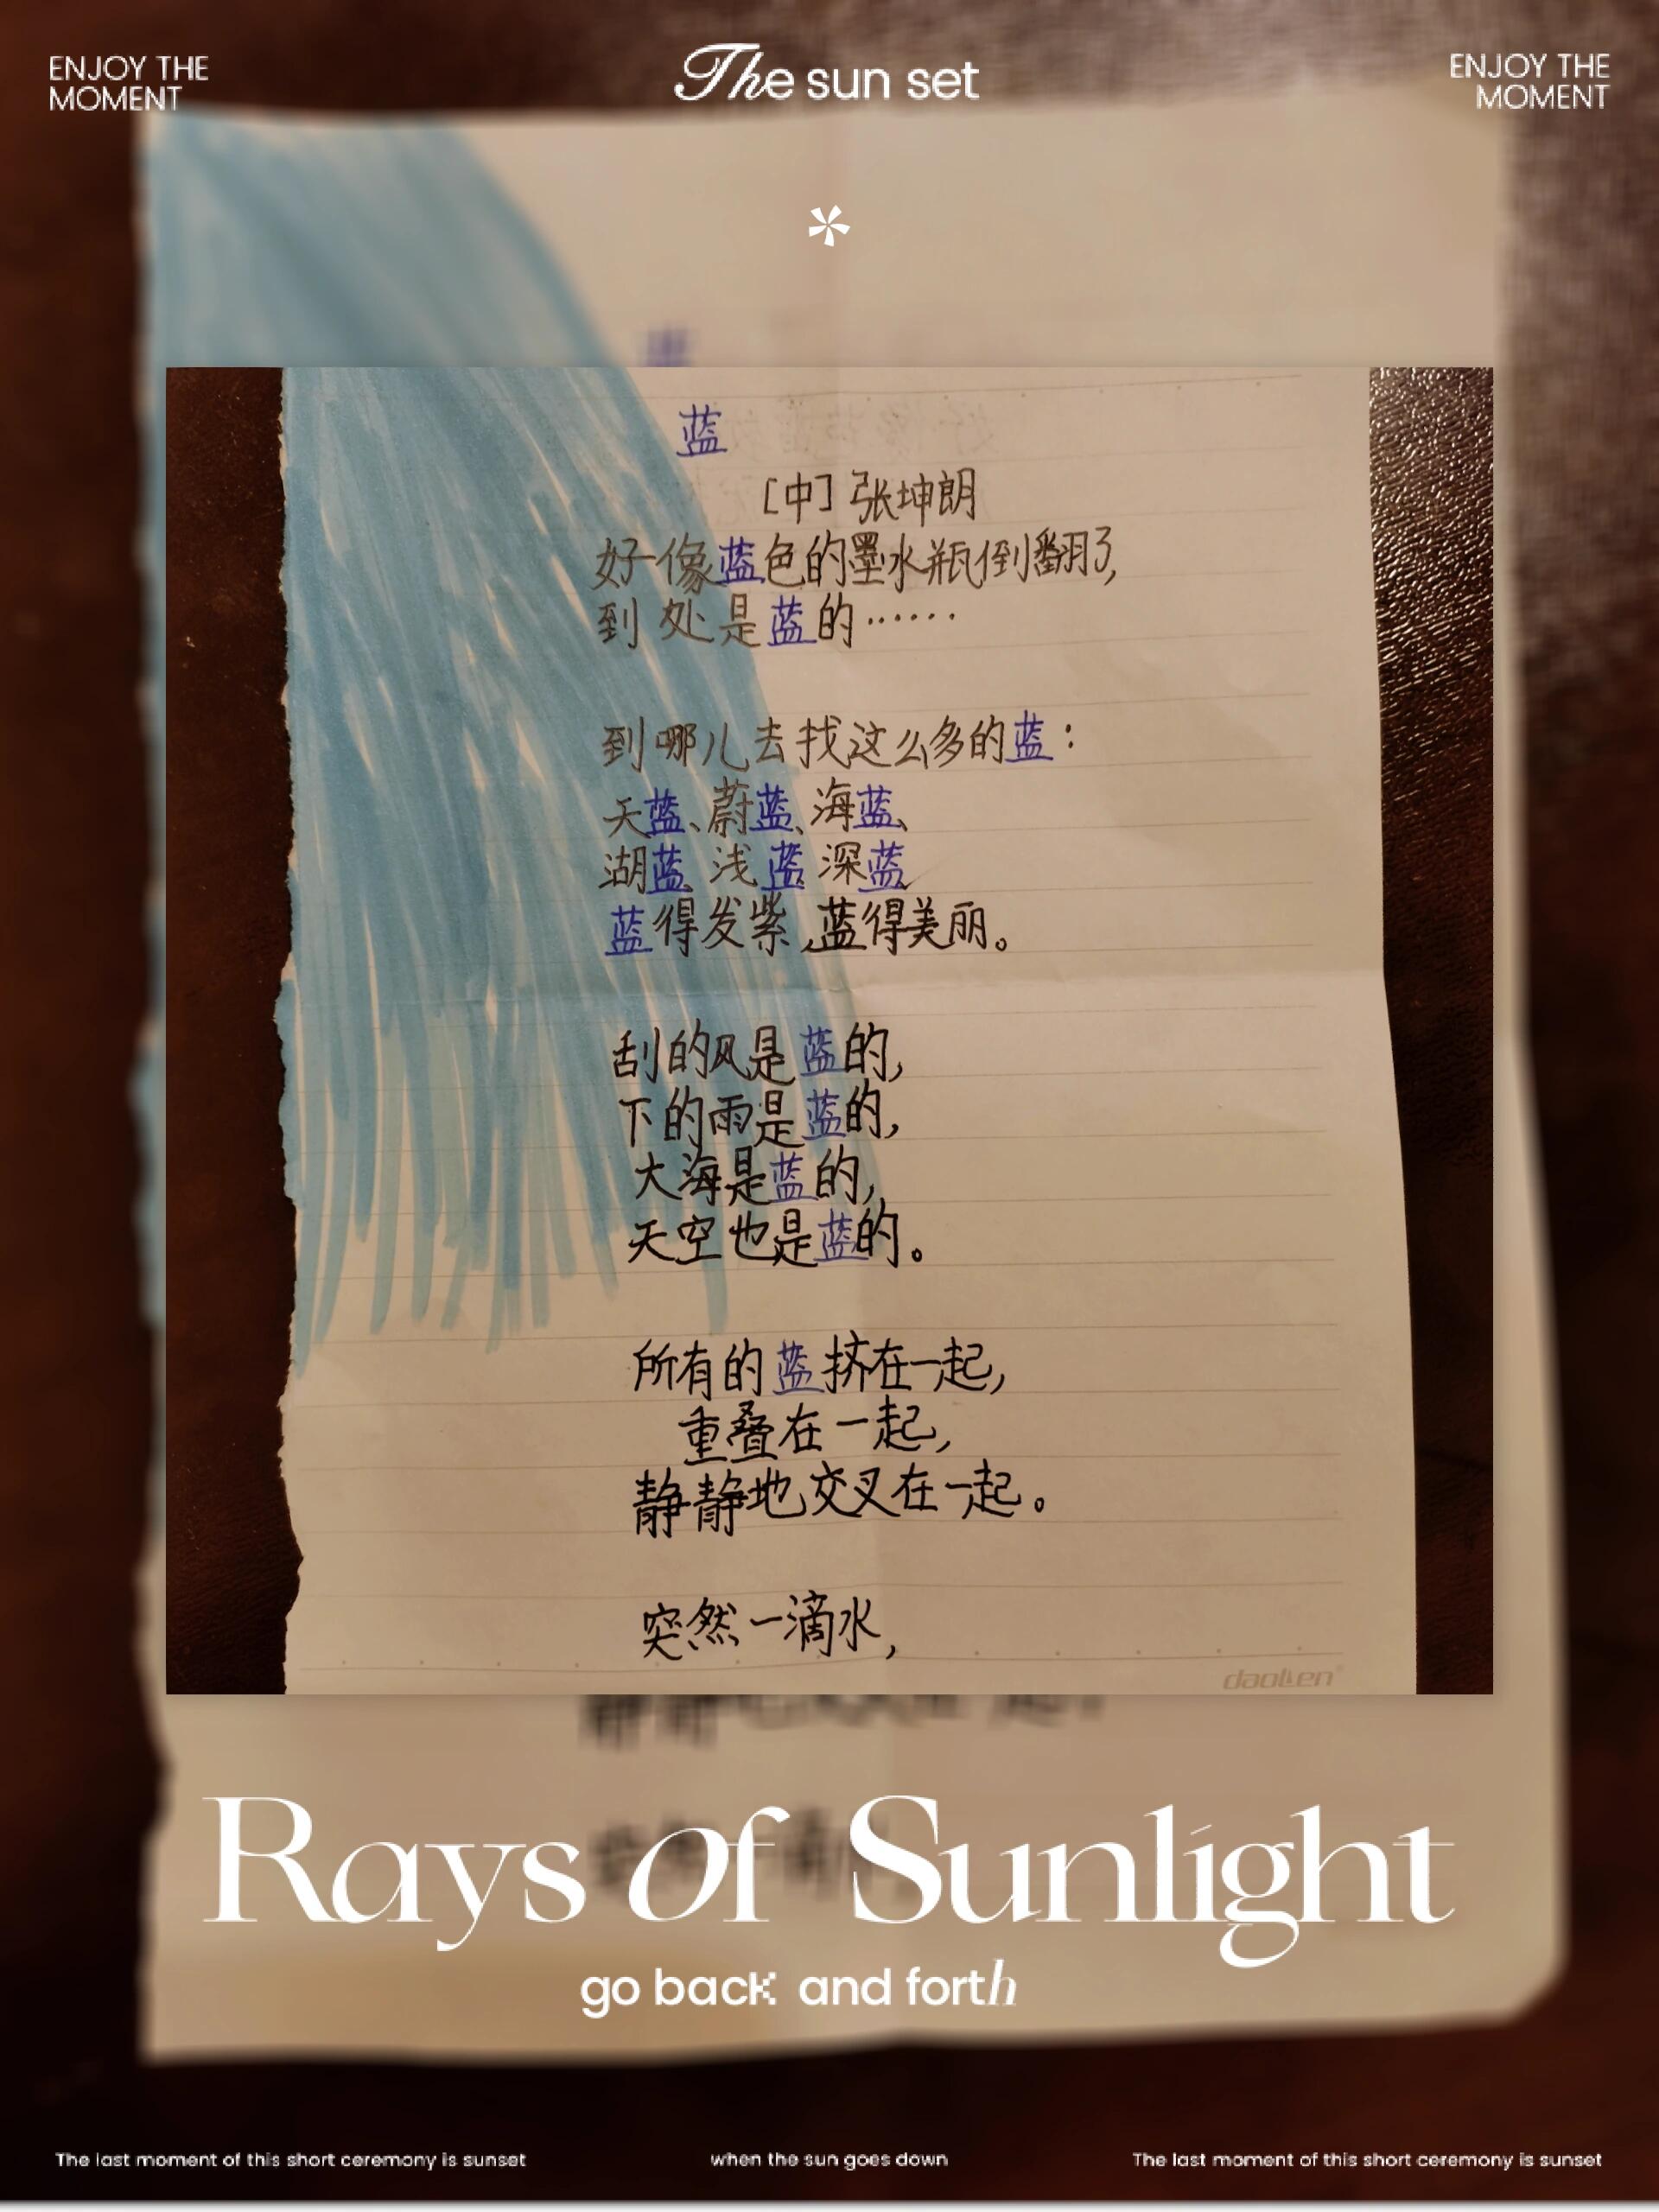 ENJOY THE
MOMENT
The sun set
ENJOY THE
MOMENT
蓝
[中]张坤朗
好像蓝色的墨水瓶倒翻了,
到处是蓝的……
到哪儿去找这么多的蓝:
天蓝、蔚蓝、海蓝、
湖蓝、浅蓝、深蓝、
蓝得发紫,蓝得美丽。
刮的风是蓝的,
下的雨是蓝的,
大海是蓝的,
天空也是蓝的。
所有的蓝挤在一起,
重叠在一起,
静静地交叉在一起。
突然一滴水,
daolien
Rays of Sunlight
go back and forth
The last moment of this short ceremony is sunset
when the sun goes down
The last moment of this short ceremony is sunset